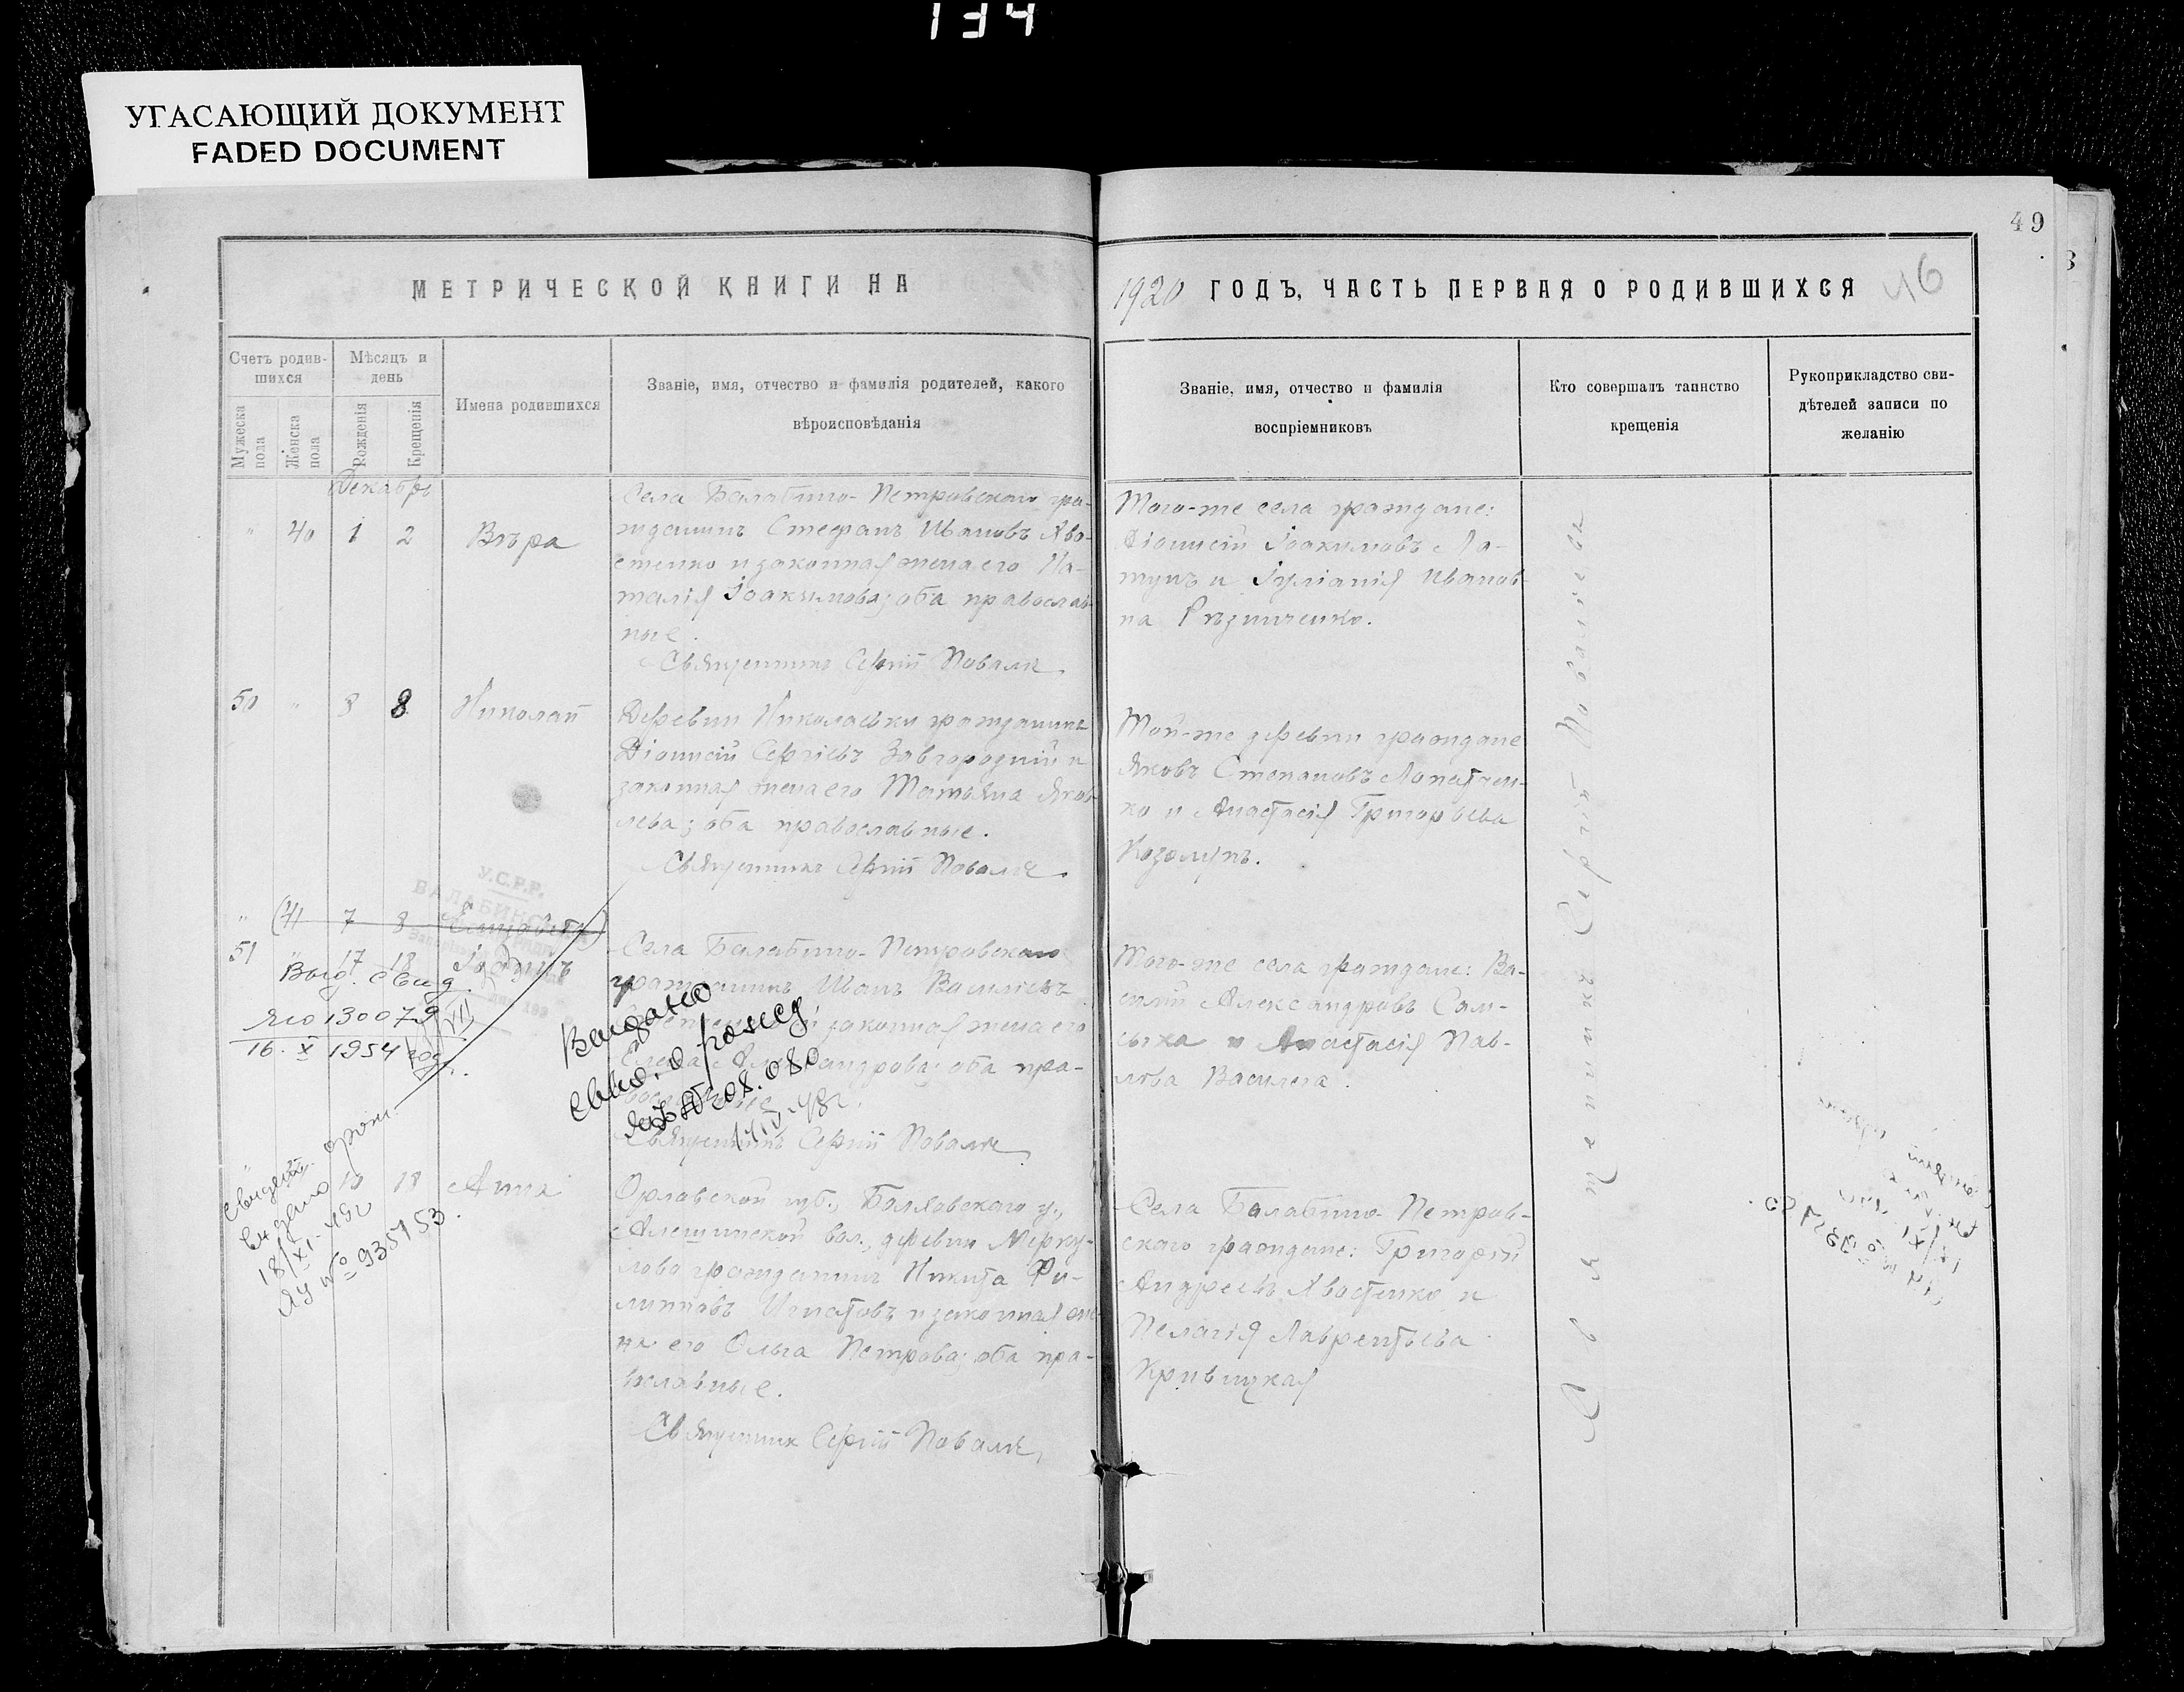 134
УГАСАЮЩИЙ ДОКУМЕНТ
FADED DOCUMENT
49
МЕТРИЧЕСКОЙ КНИГИ НА
1920 ГОДЪ, ЧАСТЬ ПЕРВАЯ О РОДИВШИХСЯ
46
Счетъ родив-
шихся
Мужеска пола
Женска пола
Мѣсяцъ и
день
Рожденія
Крещенія
Имена родившихся
Званіе, имя, отчество и фамилія родителей, какого
вѣроисповѣданія
Званіе, имя, отчество и фамилія
воспріемниковъ
Кто совершалъ таинство
крещенія
Рукоприкладство сви-
дѣтелей записи по
желанію
Декабрь
" 40 1 2 Вѣра
Села Балабино-Петровскаго гра-
жданинъ Стефанъ Ивановъ Хво-
стенко и законная жена его На-
талія Іоакимова; оба православ-
ные.
Священникъ Сергій Поваля
Того-же села граждане:
Діонисій Іоакимовъ Ла-
тунъ и Іуліанія Иванов-
на Рѣзниченко.
50 " 8 8 Николай
Деревни Николаевки гражданинъ
Діонисій Сергіевъ Завгородній и
законная жена его Татьяна Яков-
лева; оба православные.
Священникъ Сергій Поваля.
Той-же деревни граждане
Яковъ Степановъ Лопатчен-
ко и Анастасія Григорьева
Козолупъ.
У.С.Р.Р.
" (41 7 8
51 " 17 18
Выд. свид.
ЯЮ 130079
16. X 1954 год.
Села Балабино-Петровскаго
гражданинъ Иванъ Васильевъ
законная жена его
Елена Александрова; оба пра-
вославные
Священникъ Сергій Поваля
Выдано
свид. о рожд
208.080
Того-же села граждане: Ва-
силій Александровъ Сам-
сыка и Анастасія Пав-
лова Василега.
18 Анна
свидет.
выдано
18/XI-
ЯУ № 935753
Орловской губ., Болховскаго у.,
Алешинской вол., деревни Мерку-
лова гражданинъ Никита Фи-
липповъ Игнатовъ и законная же-
на его Ольга Петрова; оба пра-
вославные.
Священник Сергій Поваля
Села Балабино Петров-
скаго граждане: Григорій
Андреевъ Хвостенко и
Пелагія Лаврентьева
Кривицкая